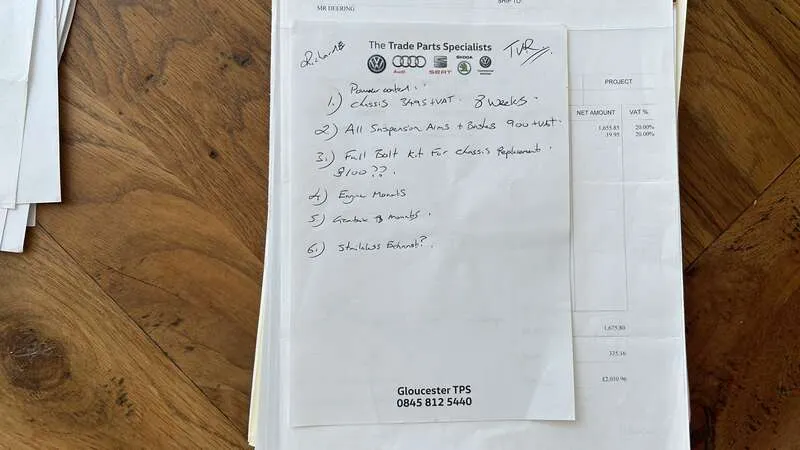 MR DEERING
SHIP TO:
Richard
TVR
The Trade Parts Specialists
Audi
SEAT
SKODA
Powder coated
1.) Chassis 3495 + VAT. 8 weeks.
2) All Suspension Arms + 900 + VAT.
3.) Full Bolt Kit For Chassis Replacement.
£100??.
4.) Engine Mounts
5.) Mounts.
6.) Exhaust?.
Gloucester TPS
0845 812 5440
PROJECT
NET AMOUNT VAT %
1,655.85 20.00%
19.95 20.00%
1,675.80
335.16
£2,010.96